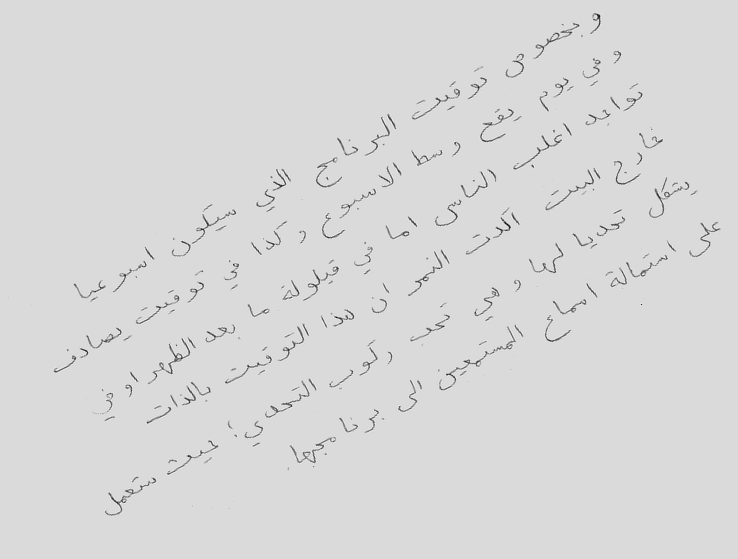 وبخصوص توقيت البرنامج الذي سيكون اسبوعيا
وفي يوم يقع وسط الاسبوع وكذا في توقيت يصادف
تواجد اغلب الناس اما في قيلولة ما بعد الظهر او في
خارج البيت اكدت النمر ان هذا التوقيت بالذات
يشكل تحديا لها وهي تحب ركوب التحدي؛ حيث ستعمل
على استمالة اسماع المستمعين الى برنامجها.